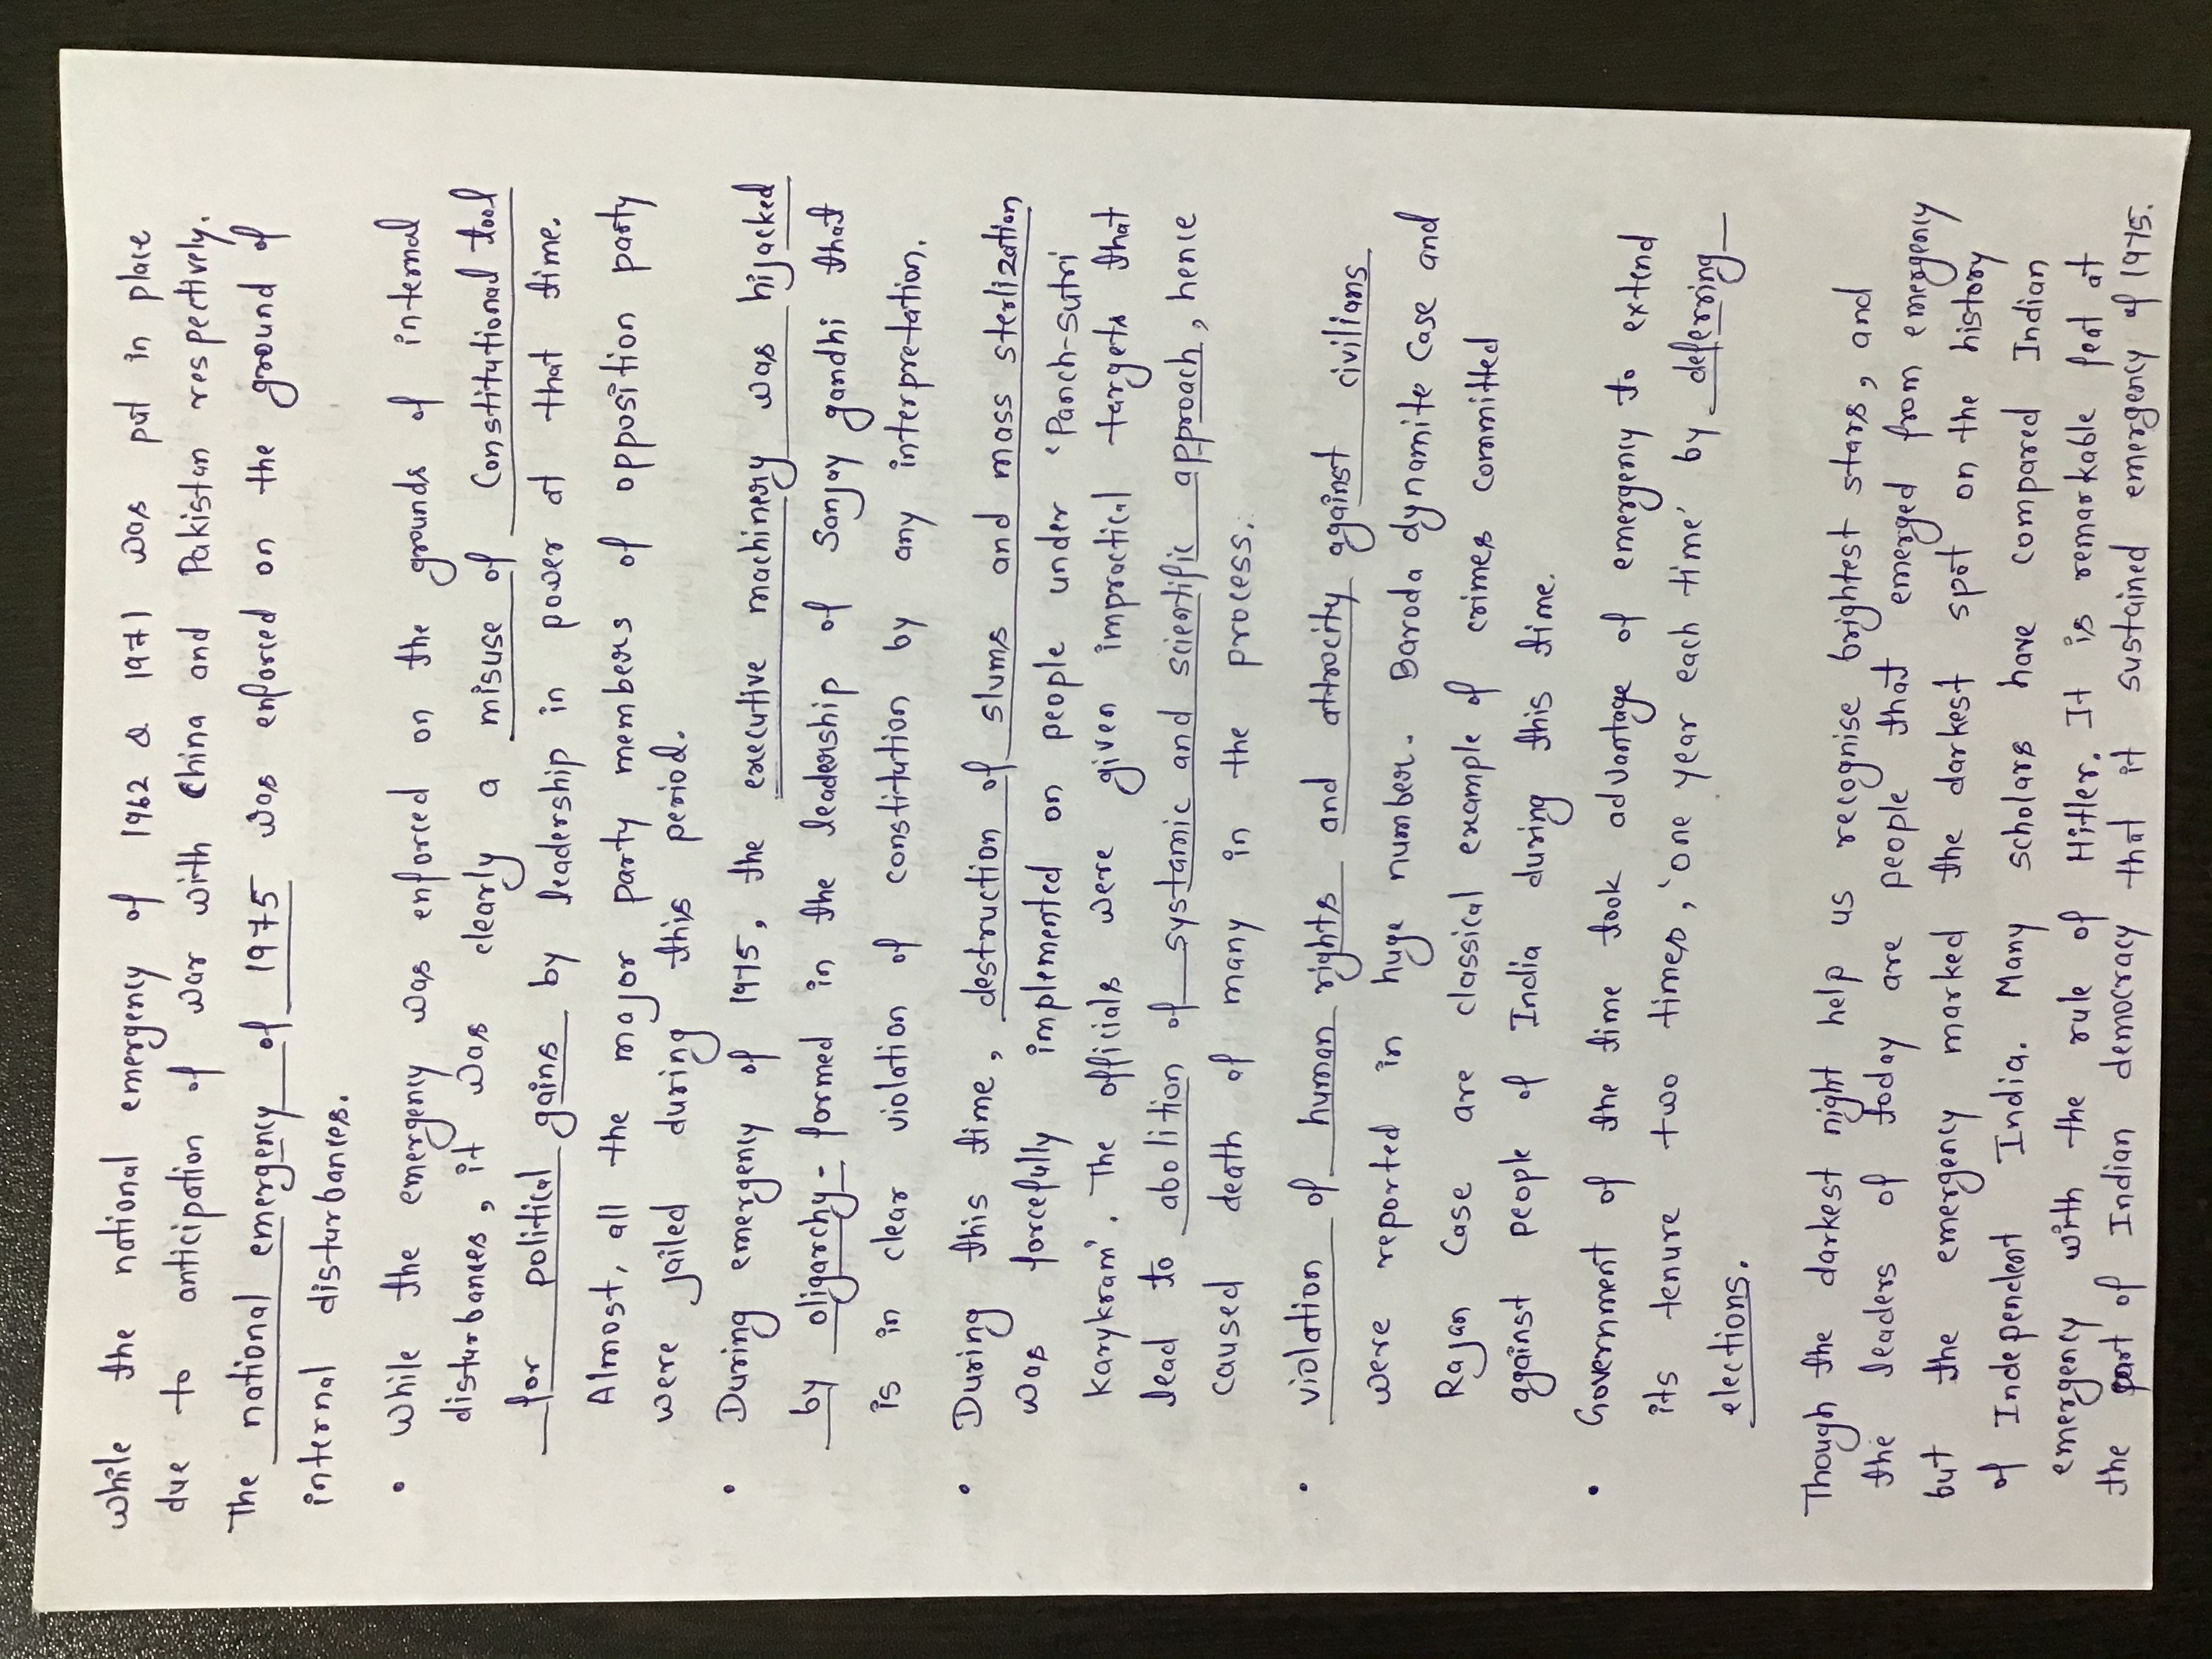 While the national emergency of 1962 & 1971 was put in place
due to anticipation of war with China and Pakistan respectively.
The national emergency of 1975 was enforced on the ground of
internal disturbances.
• While the emergency was enforced on the grounds of internal
disturbances, it was clearly a misuse of Constitutional tool
for political gains by leadership in power at that time.
Almost, all the major party members of opposition party
were jailed during this period.
• During emergency of 1975, the executive machinery was hijacked
by oligarchy - formed in the leadership of Sanjay gandhi that
is in clear violation of constitution by any interpretation.
• During this time, destruction of slums and mass sterlization
was forcefully implemented on people under 'Panch-Sutri
Karykram'. The officials were given impractical targets that
lead to abolition of systamic and scientific approach, hence
caused death of many in the process.
• violation of human rights and attrocity against civilians
were reported in huge number. Baroda dynamite Case and
Rajan Case are classical example of crimes committed
against people of India during this time.
• Government of the time took advantage of emergency to extend
its tenure two times, 'one year each time' by deferring
elections.
Though the darkest night help us recognise brightest stars, and
the leaders of today are people that emerged from emergency
but the emergency marked the darkest spot on the history
of Independent India. Many scholars have compared Indian
emergency with the rule of Hitler. It is remarkable feat at
the part of Indian democracy that it sustained emergency of 1975.